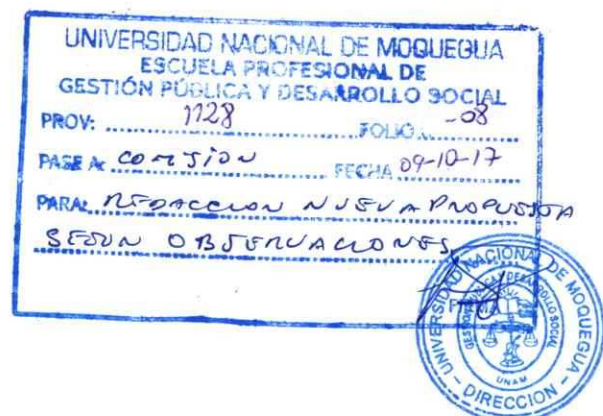 UNIVERSIDAD NACIONAL DE MOQUEGUA
ESCUELA PROFESIONAL DE
GESTIÓN PÚBLICA Y DESARROLLO SOCIAL
PROV: 1128 FOLIO: -08
PASE A: COMISION FECHA 09-10-17
PARA: REDACCION NUEVA PROPUESTA
SEGUN OBSERVACIONES
FIRMA
UNIVERSIDAD NACIONAL DE MOQUEGUA
GESTION PUBLICA Y DESARROLLO SOCIAL
UNAM
- DIRECCION -